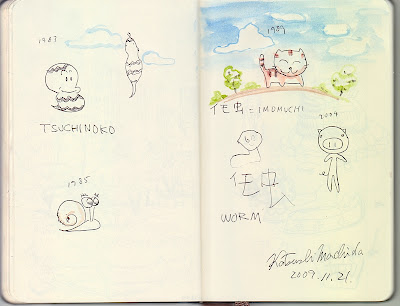 1987
TSUCHINOKO
1985
1989
任虫 = IMOMUCHI
2009
任虫
WORM
Katsushi Machida
2009.11.21.